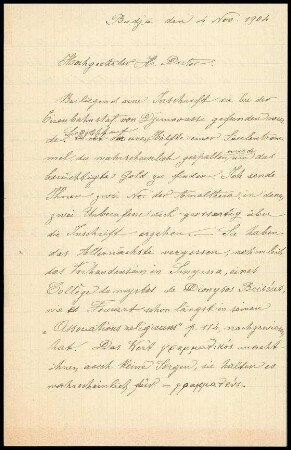 Budja den 4 Nov 1904
Hochgeehrter H. Doctor
Beiliegend eine Inschrift die bei der
Eisenbahnstat. von Djimovassi gefunden wur-
de. Sie ist die eine Hälfte einer Saulentrom-
mel, die wahrscheinlich gespalten wurde um das
berüchtigte Gold zu finden. Ich sende
Ihnen zwei Nor der Amalthia, in denen
zwei Unberufene sich grossartig über
die Inschrift ergehen. Sie haben
das Allernächste vergessen, nähmlich
das Vorhandensein in Smyrna, eines
Collège de mystes de Dionysos Briséus,
wie es Foucart schon längst in seinen
"Associations religieuses" p 114, nachgewiesen
hat. Das Wort γραμματικὸς macht
ihnen auch keine Sorgen, sie halten es
wahrscheinlich für = γραμματεύς.